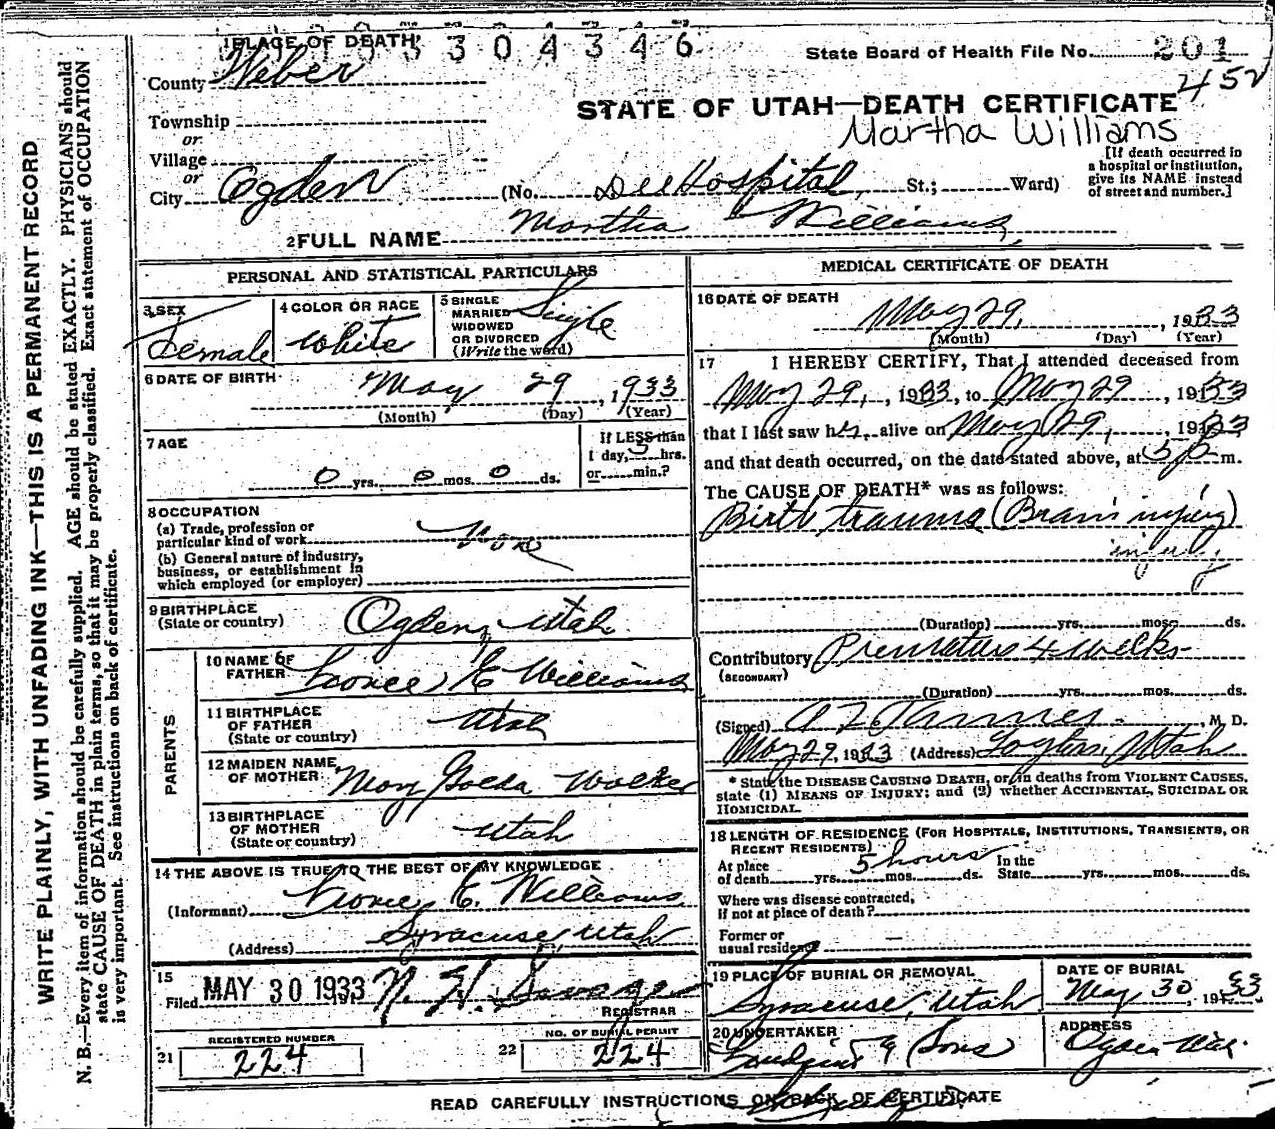 1 PLACE OF DEATH
3 3 0 4 3 4 6
State Board of Health File No. 201
452
County Weber
STATE OF UTAH—DEATH CERTIFICATE
Martha Williams
Township
or
Village
or
City Ogden (No. Dee Hospital St.; Ward)
[If death occurred in
a hospital or institution,
give its NAME instead
of street and number.]
2 FULL NAME Martha Williams
PERSONAL AND STATISTICAL PARTICULARS
3 SEX
Female
4 COLOR OR RACE
White
5 SINGLE
MARRIED
WIDOWED
OR DIVORCED
(Write the word)
Single
6 DATE OF BIRTH
May 29, 1933
(Month) (Day) (Year)
7 AGE
0 yrs. 0 mos. 0 ds.
If LESS than
1 day, 5 hrs.
or min.?
8 OCCUPATION
(a) Trade, profession or
particular kind of work None
(b) General nature of industry,
business, or establishment in
which employed (or employer)
9 BIRTHPLACE
(State or country) Ogden, Utah.
PARENTS
10 NAME OF
FATHER E Williams
11 BIRTHPLACE
OF FATHER
(State or country) Utah
12 MAIDEN NAME
OF MOTHER Mary Golda Walker
13 BIRTHPLACE
OF MOTHER
(State or country) Utah
14 THE ABOVE IS TRUE TO THE BEST OF MY KNOWLEDGE
(Informant) E. Williams
(Address) Syracuse, Utah
15
Filed MAY 30 1933 N. H. Savage
REGISTRAR
REGISTERED NUMBER
21 224
NO. OF BURIAL PERMIT
22 224
MEDICAL CERTIFICATE OF DEATH
16 DATE OF DEATH
May 29, 1933
(Month) (Day) (Year)
17 I HEREBY CERTIFY, That I attended deceased from
May 29, 1933, to May 29, 1933
that I last saw her alive on May 29, 1933
and that death occurred, on the date stated above, at 5 p m.
The CAUSE OF DEATH* was as follows:
Birth trauma (Brain injury)
injury
(Duration) yrs. mos. ds.
Contributory Premature 4 weeks
(SECONDARY)
(Duration) yrs. mos. ds.
(Signed) Tanner M. D.
May 29, 1933 (Address) Layton, Utah
* State the DISEASE CAUSING DEATH, or, in deaths from VIOLENT CAUSES,
state (1) MEANS OF INJURY; and (2) whether ACCIDENTAL, SUICIDAL OR
HOMICIDAL.
18 LENGTH OF RESIDENCE (FOR HOSPITALS, INSTITUTIONS, TRANSIENTS, OR
RECENT RESIDENTS)
At place
of death yrs. mos. ds. 5 hours In the
State yrs. mos. ds.
Where was disease contracted,
if not at place of death?
Former or
usual residence —
19 PLACE OF BURIAL OR REMOVAL
Syracuse, Utah
DATE OF BURIAL
May 30, 1933
20 UNDERTAKER
& Sons
ADDRESS
Ogden
READ CAREFULLY INSTRUCTIONS ON BACK OF CERTIFICATE
WRITE PLAINLY, WITH UNFADING INK—THIS IS A PERMANENT RECORD
N. B.—Every item of information should be carefully supplied. AGE should be stated EXACTLY. PHYSICIANS should
state CAUSE OF DEATH in plain terms, so that it may be properly classified. Exact statement of OCCUPATION
is very important. See instructions on back of certificate.